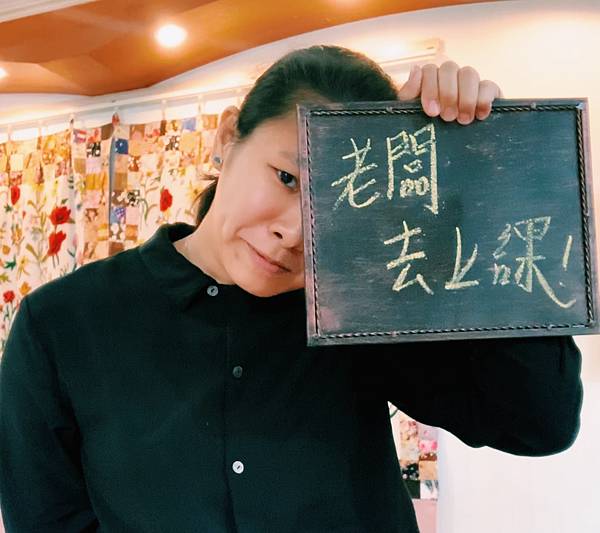 老闆
去上課!